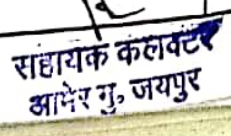 सहायक कलक्टर
आमेर मु, जयपुर